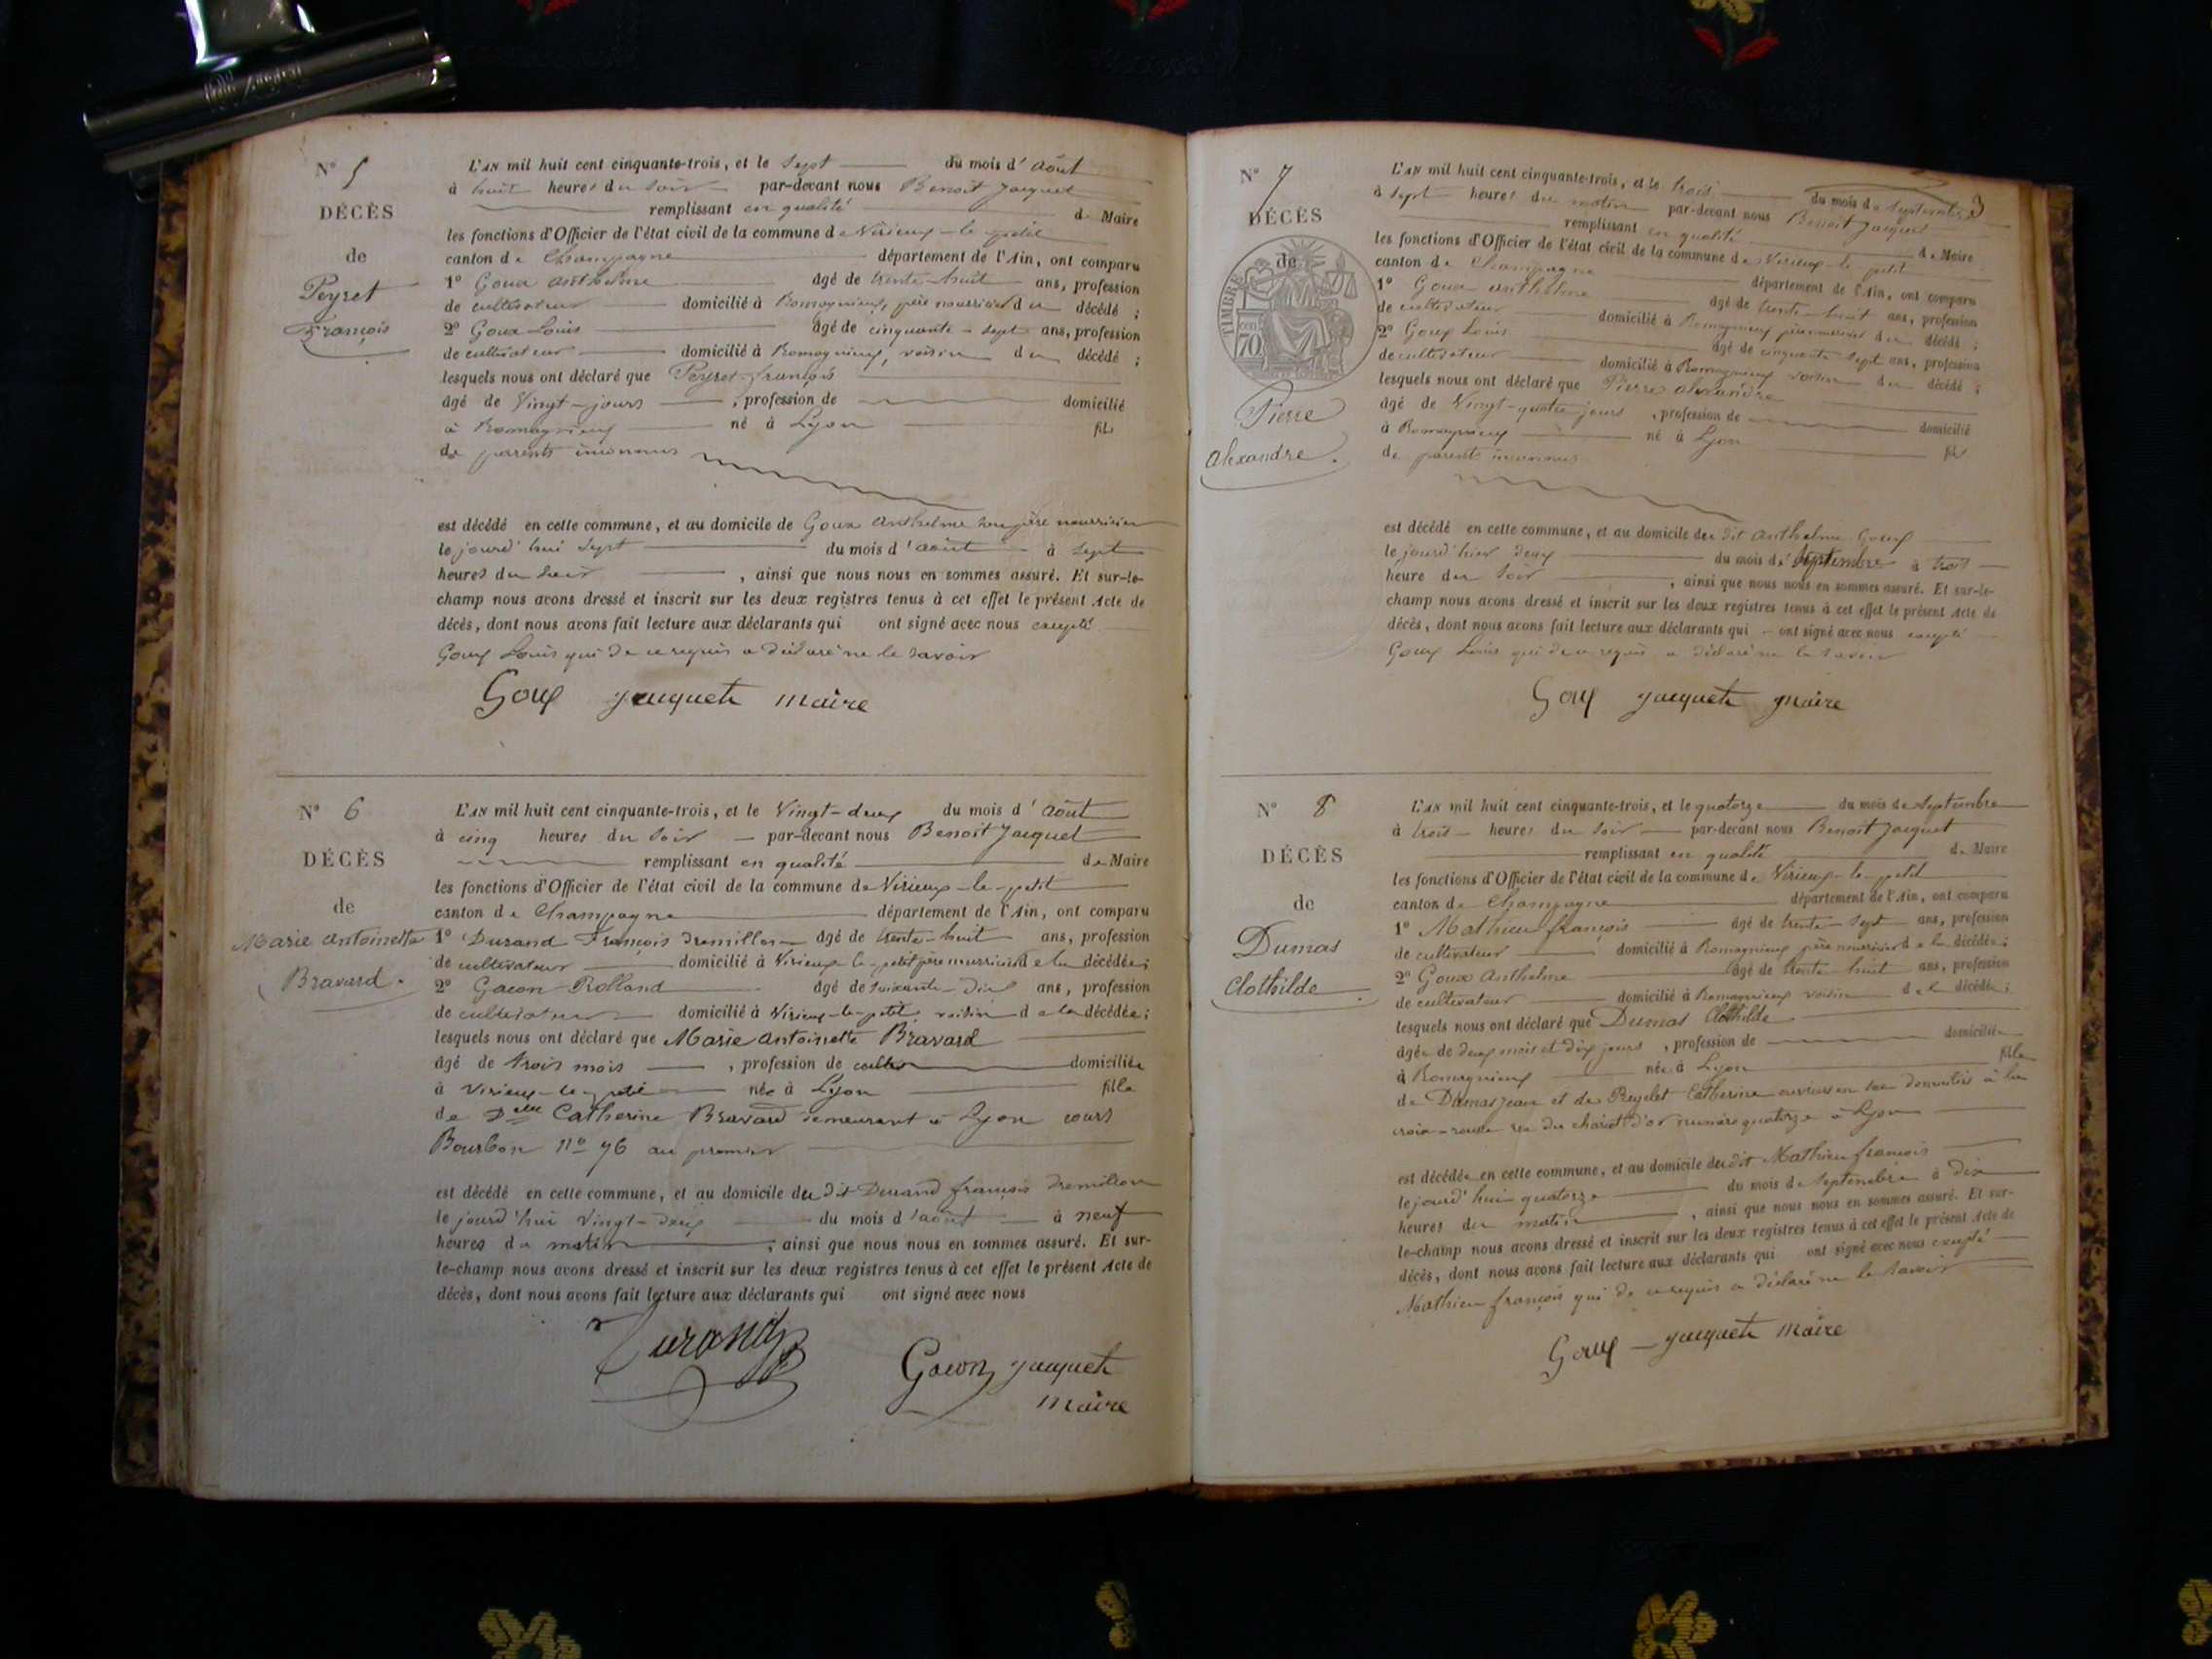 N° 5
DÉCÈS
de
Peyret
François
L'AN mil huit cent cinquante-trois, et le sept du mois d'Août
à huit heures du soir par-devant nous Benoît Jacquet
remplissant en qualité de Maire
les fonctions d'Officier de l'état civil de la commune de Virieux-le-petit
canton de Champagne département de l'Ain, ont comparu
1° Goux Anthelme âgé de trente-huit ans, profession
de cultivateur domicilié à Romagnieux, père nourricier du décédé ;
2° Goux Louis âgé de cinquante-sept ans, profession
de cultivateur domicilié à Romagnieux, voisin du décédé ;
lesquels nous ont déclaré que Peyret françois
âgé de Vingt-jours , profession de domicilié
à Romagnieux né à Lyon fils
de parents inconnus
est décédé en cette commune, et au domicile de Goux Anthelme son père nourricier
le jourd'hui sept du mois d'août à sept
heures du soir , ainsi que nous nous en sommes assuré. Et sur-le-
champ nous avons dressé et inscrit sur les deux registres tenus à cet effet le présent Acte de
décès, dont nous avons fait lecture aux déclarants qui ont signé avec nous excepté
Goux Louis qui de ce requis a déclaré ne le savoir
Goux Jacquet maire
N° 6
DÉCÈS
de
Marie Antoinette
Bravard.
L'AN mil huit cent cinquante-trois, et le Vingt-deux du mois d'Août
à cinq heures du soir par-devant nous Benoît Jacquet
remplissant en qualité de Maire
les fonctions d'Officier de l'état civil de la commune de Virieux-le-petit
canton de Champagne département de l'Ain, ont comparu
1° Durand François Dremillon âgé de trente-huit ans, profession
de cultivateur domicilié à Virieux-le-petit père nourricier de la décédée ;
2° Gacon Rolland âgé de soixante-dix ans, profession
de cultivateur domicilié à Virieux-le-petit, voisin de la décédée ;
lesquels nous ont déclaré que Marie Antoinette Bravard
âgé de trois mois , profession de domiciliée
à Virieux-le-petit née à Lyon fille
de Delle Catherine Bravard demeurant à Lyon cours
Bourbon n° 76 au premier
est décédé en cette commune, et au domicile du dit Durand françois Dremillon
le jourd'hui vingt-deux du mois d'août à neuf
heures du matin , ainsi que nous nous en sommes assuré. Et sur-
le-champ nous avons dressé et inscrit sur les deux registres tenus à cet effet le présent Acte de
décès, dont nous avons fait lecture aux déclarants qui ont signé avec nous
Durand
Gacon Jacquet
maire
3
N° 7
DÉCÈS
de
TIMBRE
70
Pierre
Alexandre.
L'AN mil huit cent cinquante-trois, et le trois du mois de septembre
à sept heures du matin par-devant nous Benoît Jacquet
remplissant en qualité de Maire
les fonctions d'Officier de l'état civil de la commune de Virieux-le-petit
canton de Champagne département de l'Ain, ont comparu
1° Goux Anthelme âgé de trente-huit ans, profession
de cultivateur domicilié à Romagnieux père nourricier du décédé ;
2° Goux Louis âgé de cinquante-sept ans, profession
de cultivateur domicilié à Romagnieux voisin du décédé ;
lesquels nous ont déclaré que Pierre Alexandre
âgé de Vingt-quatre jours , profession de domicilié
à Romagnieux né à Lyon fils
de parents inconnus
est décédé en cette commune, et au domicile du dit Anthelme Goux
le jourd'hier deux du mois de Septembre à trois
heure du soir , ainsi que nous nous en sommes assuré. Et sur-le-
champ nous avons dressé et inscrit sur les deux registres tenus à cet effet le présent Acte de
décès, dont nous avons fait lecture aux déclarants qui ont signé avec nous excepté
Goux Louis qui de ce requis a déclaré ne le savoir
Goux Jacquet maire
N° 8
DÉCÈS
de
Dumas
Clothilde
L'AN mil huit cent cinquante-trois, et le quatorze du mois de Septembre
à trois heures du soir par-devant nous Benoît Jacquet
remplissant en qualité de Maire
les fonctions d'Officier de l'état civil de la commune de Virieux-le-petit
canton de Champagne département de l'Ain, ont comparu
1° Mathieu françois âgé de trente-sept ans, profession
de cultivateur domicilié à Romagnieux père nourricier de la décédée ;
2° Goux Anthelme âgé de trente-huit ans, profession
de cultivateur domicilié à Romagnieux voisin de la décédée ;
lesquels nous ont déclaré que Dumas Clothilde
âgée de deux mois et dix jours , profession de domiciliée
à Romagnieux née à Lyon fille
de Dumas Jean et de Peyzelet Catherine ouvriers en soie domiciliés à la
croix-rousse rue du chariot d'or numéro quatorze à Lyon
est décédée en cette commune, et au domicile du dit Mathieu françois
le jourd'hui quatorze du mois de Septembre à dix
heures du matin , ainsi que nous nous en sommes assuré. Et sur-
le-champ nous avons dressé et inscrit sur les deux registres tenus à cet effet le présent Acte de
décès, dont nous avons fait lecture aux déclarants qui ont signé avec nous excepté
Mathieu françois qui de ce requis a déclaré ne le savoir
Goux Jacquet maire